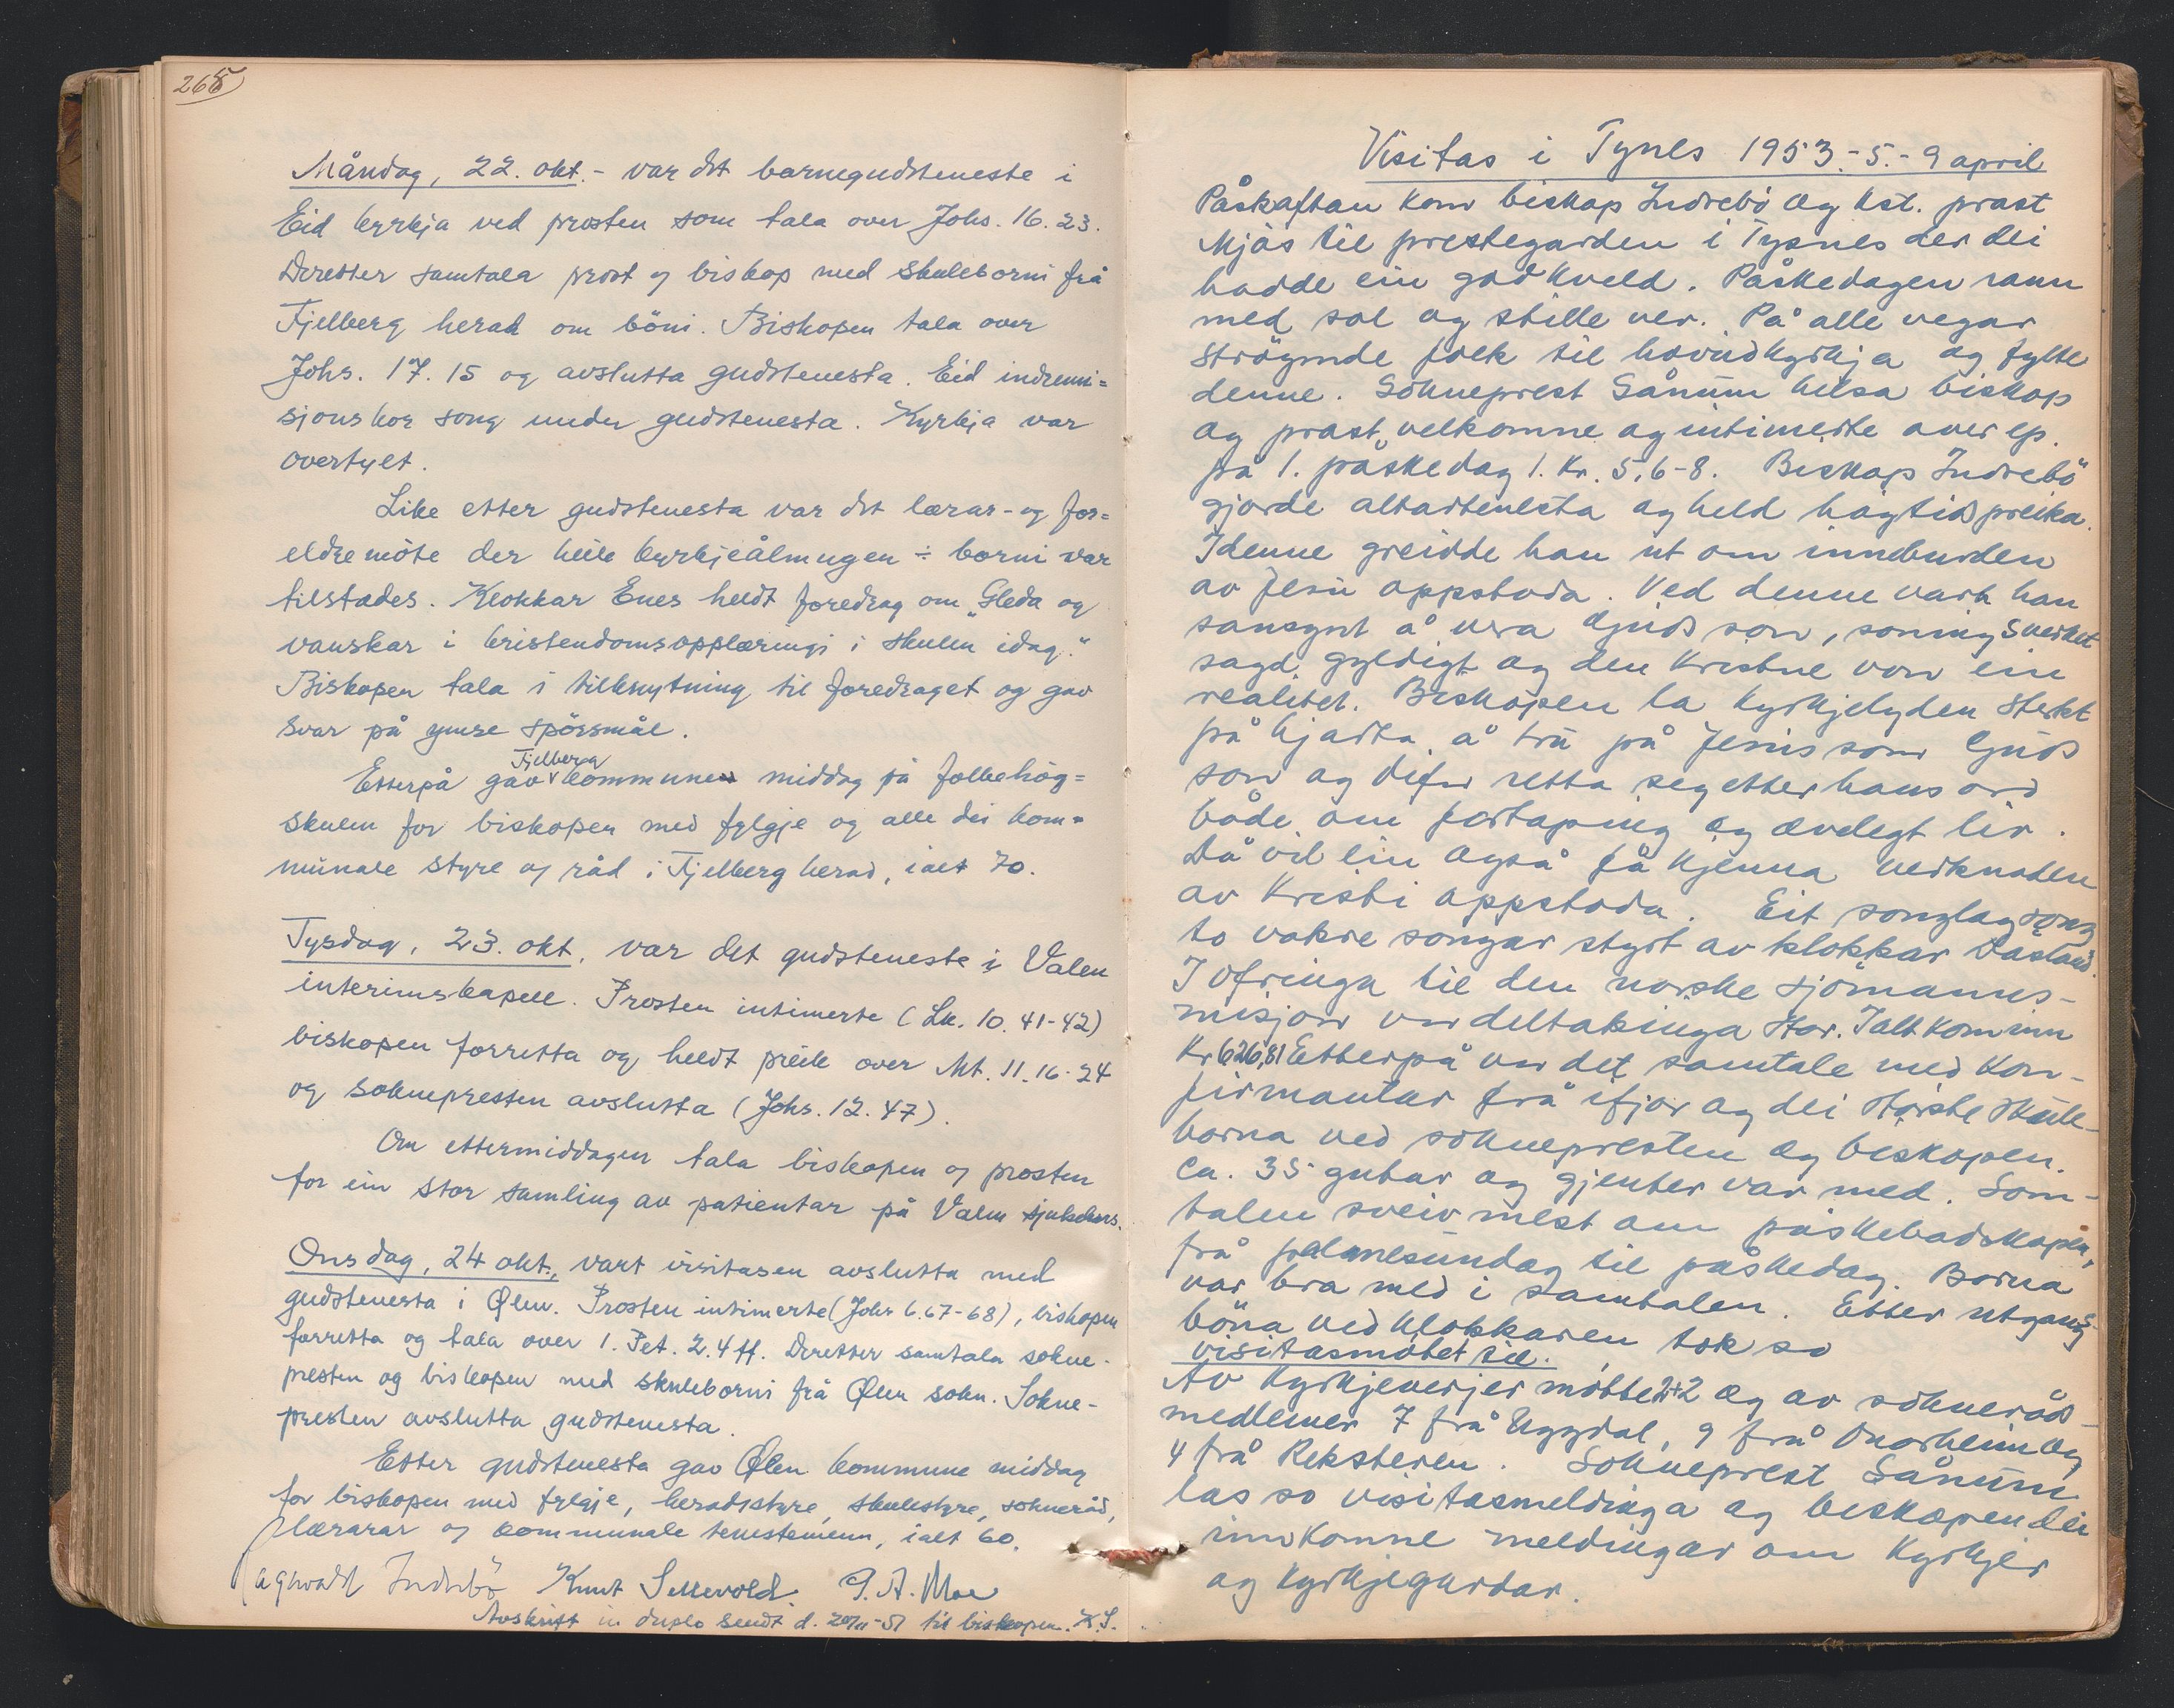 265
Måndag, 22. okt. - var det barnegudsteneste i
Eid kyrkja ved prosten som tala over Johs. 16. 23.
Deretter samtala prost og biskop med skuleborni frå
Fjelberg herad om böni. Biskopen tala over
Johs. 17. 15 og avslutta gudstenesta. Eid indremi=
sjonskor song under gudstenesta. Kyrkja var
overfylt.
Like etter gudstenesta var det lærar- og for=
eldremöte der heile kyrkjeålmugen ÷ borni var
tilstades. Klokkar Enes heldt foredrag om "Gleda og
vanskar i kristendomsopplæringi i skulen idag."
Biskopen tala i tilknytning til foredraget og gav
svar på ymse spörsmål.
Etterpå gav Fjelberg kommune middag på folkehög=
skulen for biskopen med fylgje og alle dei kom=
munale styre og råd i Fjelberg herad, ialt 70.
Tysdag, 23. okt. var det gudsteneste i Valen
interimskapell. Prosten intimerte (Lk. 10. 41-42)
biskopen forretta og heldt preik over Mt. 11. 16-24
og soknepresten avslutta (Johs. 12. 47).
Om ettermiddagen tala biskopen og prosten
for ein stor samling av patientar på Valen sjukehus.
Onsdag, 24 okt., vart visitasen avslutta med
gudstenesta i Ølen. Prosten intimerte (Johs 6. 67-68), biskopen
forretta og tala over 1. Pet. 2. 4 ff. Deretter samtala sokne-
presten og biskopen med skuleborni frå Ølen sokn. Sokne-
presten avslutta gudstenesta.
Etter gudstenesta gav Ølen kommune middag
for biskopen med fylgje, heradstyre, skulestyre, sokneråd,
lærarar og kommunale tenestemenn, ialt 60.
Ragnvald Indrebö Knut Sellevold. P. A. Moe
Avskrift in duplo sendt d. 20/11-51 til biskopen. K.S.
Visitas i Tysnes 1953.-5.-9 april
Påskaftan kom biskop Indrebö og kst. prost
Mjös til prestegarden i Tysnes der dei
hadde ein god kveld. Påskedagen rann
med sol og stille ver. På alle vegar
ströymde folk til hovudkyrkja og fylte
denne. Sokneprest Sånum helsa biskop
og prost velkomne og intimerte over ep.
på 1. påskedag 1. Kr. 5, 6-8. Biskop Indrebö
gjorde altartenesta og held högtidspreika.
I denne greidde han ut om inneburden
av Jesu oppstoda. Ved denne vart han
sannsynt å vera Guds son, soningsverket
sagd gyldigt og den kristne von ein
realitet. Biskopen la kyrkjelyden sterkt
på hjarta å tru på Jesus som Guds
son og difor retta seg etter hans ord
både om fortaping og ævelegt liv.
Då vil ein også få kjenna verknaden
av Kristi oppstoda. Eit songlag song
to vakre songar styrt av klokkar Dåsland.
I ofringa til den norske sjömanns-
misjon var deltakinga stor. Ialt kom inn
Kr 626,81 Etterpå var det samtale med kon-
firmantar frå ifjor og dei störste skule-
borna ved soknepresten og biskopen.
Ca. 35 gutar og gjenter var med. Sam-
talen sveiv mest om påskebodskapen,
frå palmesundag til påskedag. Borna
var bra med i samtalen. Etter utgangs-
böna ved klokkaren tok so
visitasmötet til.
Av kyrkjeverjer mötte 2+2 og av sokneråd-
medlemer 7 frå Uggdal, 9 frå Onarheim og
4 frå Reksteren. Sokneprest Sånum
las so visitasmeldinga og biskopen dei
innkomne meldingar om kyrkjer
og kyrkjegardar.